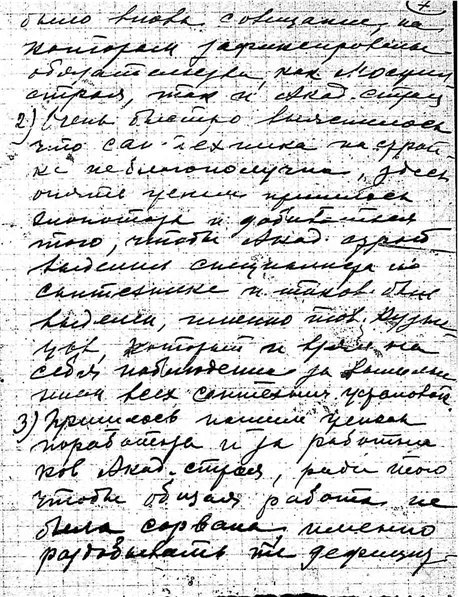 было вновь совещание, на
котором зафиксированы
обязательства, как Мосжил
строя, так и Акад. строя
2) Очень быстро выяснилось
что сан-техника на строй
ке неблагополучна, здесь
опять пришлось
похлопотать и добиваться
того, чтобы Акад. строй
выделил специалиста по
сантехнике и таков был
выделен, именно тов. Кузне
цов, который и взял на
себя наблюдение за выполне
нием всех сантехнич установок.
3) Пришлось нашим
поработать и за работни
ков Акад. строя, ради того
чтобы общая работа не
была сорвана, именно
раздобывать те дефицит-